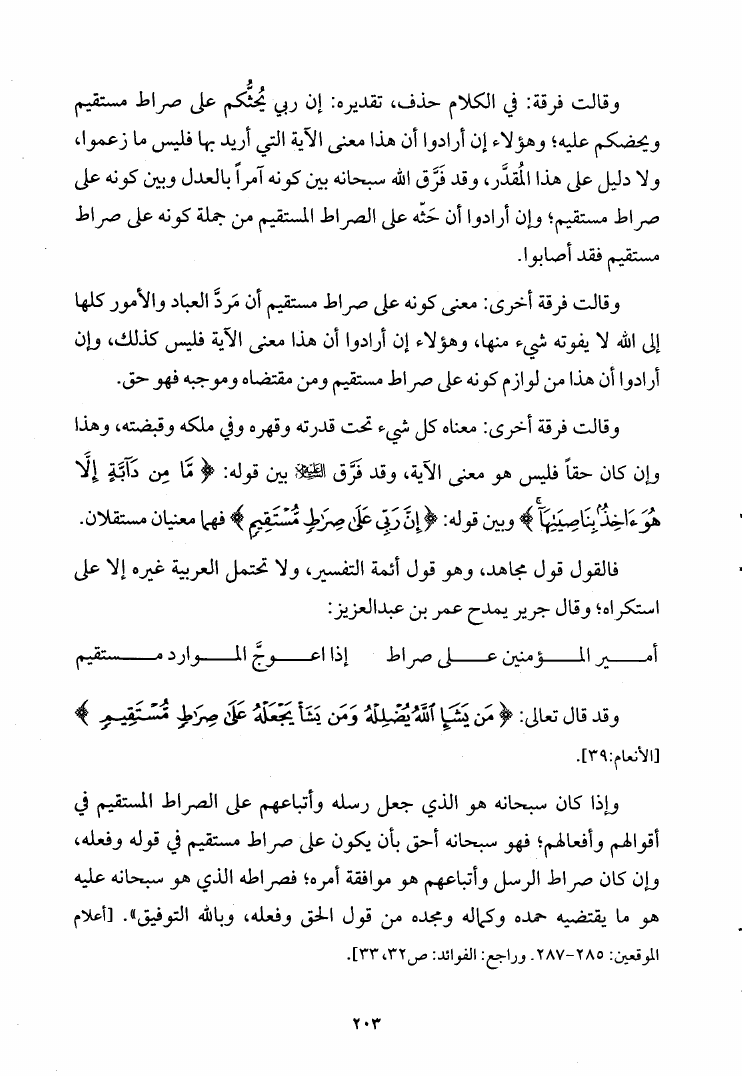 وقالت فرقة: في الكلام حذف، تقديره: إن ربي يُحثُّكم على صراط مستقيم
ويحضكم عليه؛ وهؤلاء إن أرادوا أن هذا معنى الآية التي أريد بها فليس ما زعموا،
ولا دليل على هذا المُقدَّر، وقد فَرَّق الله سبحانه بين كونه آمراً بالعدل وبين كونه على
صراط مستقيم؛ وإن أرادوا أن حَثّه على الصراط المستقيم من جملة كونه على صراط
مستقيم فقد أصابوا.
وقالت فرقة أخرى: معنى كونه على صراط مستقيم أن مَردَّ العباد والأمور كلها
إلى الله لا يفوته شيء منها، وهؤلاء إن أرادوا أن هذا معنى الآية فليس كذلك، وإن
أرادوا أن هذا من لوازم كونه على صراط مستقيم ومن مقتضاه وموجبه فهو حق.
وقالت فرقة أخرى: معناه كل شيء تحت قدرته وقهره وفي ملكه وقبضته، وهذا
وإن كان حقاً فليس هو معنى الآية، وقد فَرَّق عليه السلام بين قوله: ﴿ مَّا مِن دَآبَّةٍ إِلَّا
هُوَ ءَاخِذُۢ بِنَاصِيَتِهَآۚ ﴾ وبين قوله: ﴿ إِنَّ رَبِّى عَلَىٰ صِرَٰطٍ مُّسْتَقِيمٍ ﴾ فهما معنيان مستقلان.
فالقول قول مجاهد، وهو قول أئمة التفسير، ولا تحتمل العربية غيره إلا على
استكراه؛ وقال جرير يمدح عمر بن عبدالعزيز:
أمـــير المـــؤمنين عـــلى صراط إذا اعـــوجَّ المـــوارد مـــستقيم
وقد قال تعالى: ﴿ مَن يَشَإِ ٱللَّهُ يُضْلِلْهُ وَمَن يَشَأْ يَجْعَلْهُ عَلَىٰ صِرَٰطٍ مُّسْتَقِيمٍ ﴾
[الأنعام:٣٩].
وإذا كان سبحانه هو الذي جعل رسله وأتباعهم على الصراط المستقيم في
أقوالهم وأفعالهم؛ فهو سبحانه أحق بأن يكون على صراط مستقيم في قوله وفعله،
وإن كان صراط الرسل وأتباعهم هو موافقة أمره؛ فصراطه الذي هو سبحانه عليه
هو ما يقتضيه حمده وكماله ومجده من قول الحق وفعله، وبالله التوفيق». [أعلام
الموقعين: ٢٨٥-٢٨٧. وراجع: الفوائد: ص٣٢، ٣٣].
٢٠٣